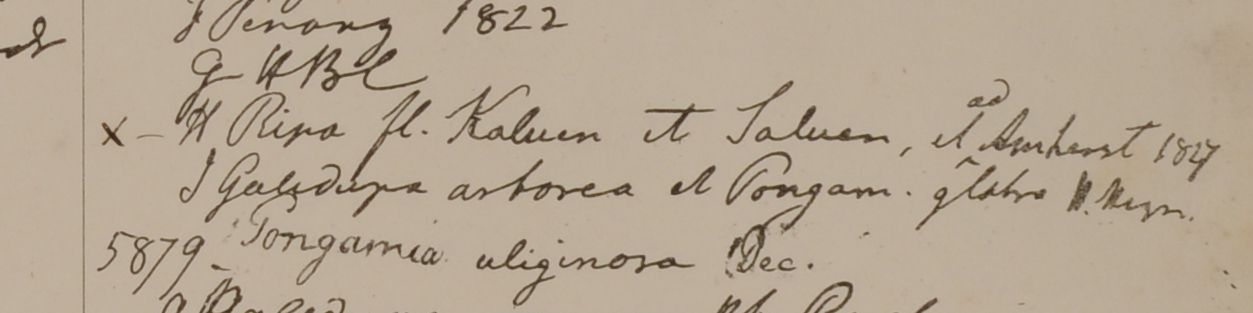 F Penang 1822
G HBC
x - H Ripa fl. Kaluen et Saluen, et ad Amherst 1827
I Galedupa arborea et Pongam. glabra H. Heyn.
5879 - Pongamia uliginosa Dec.